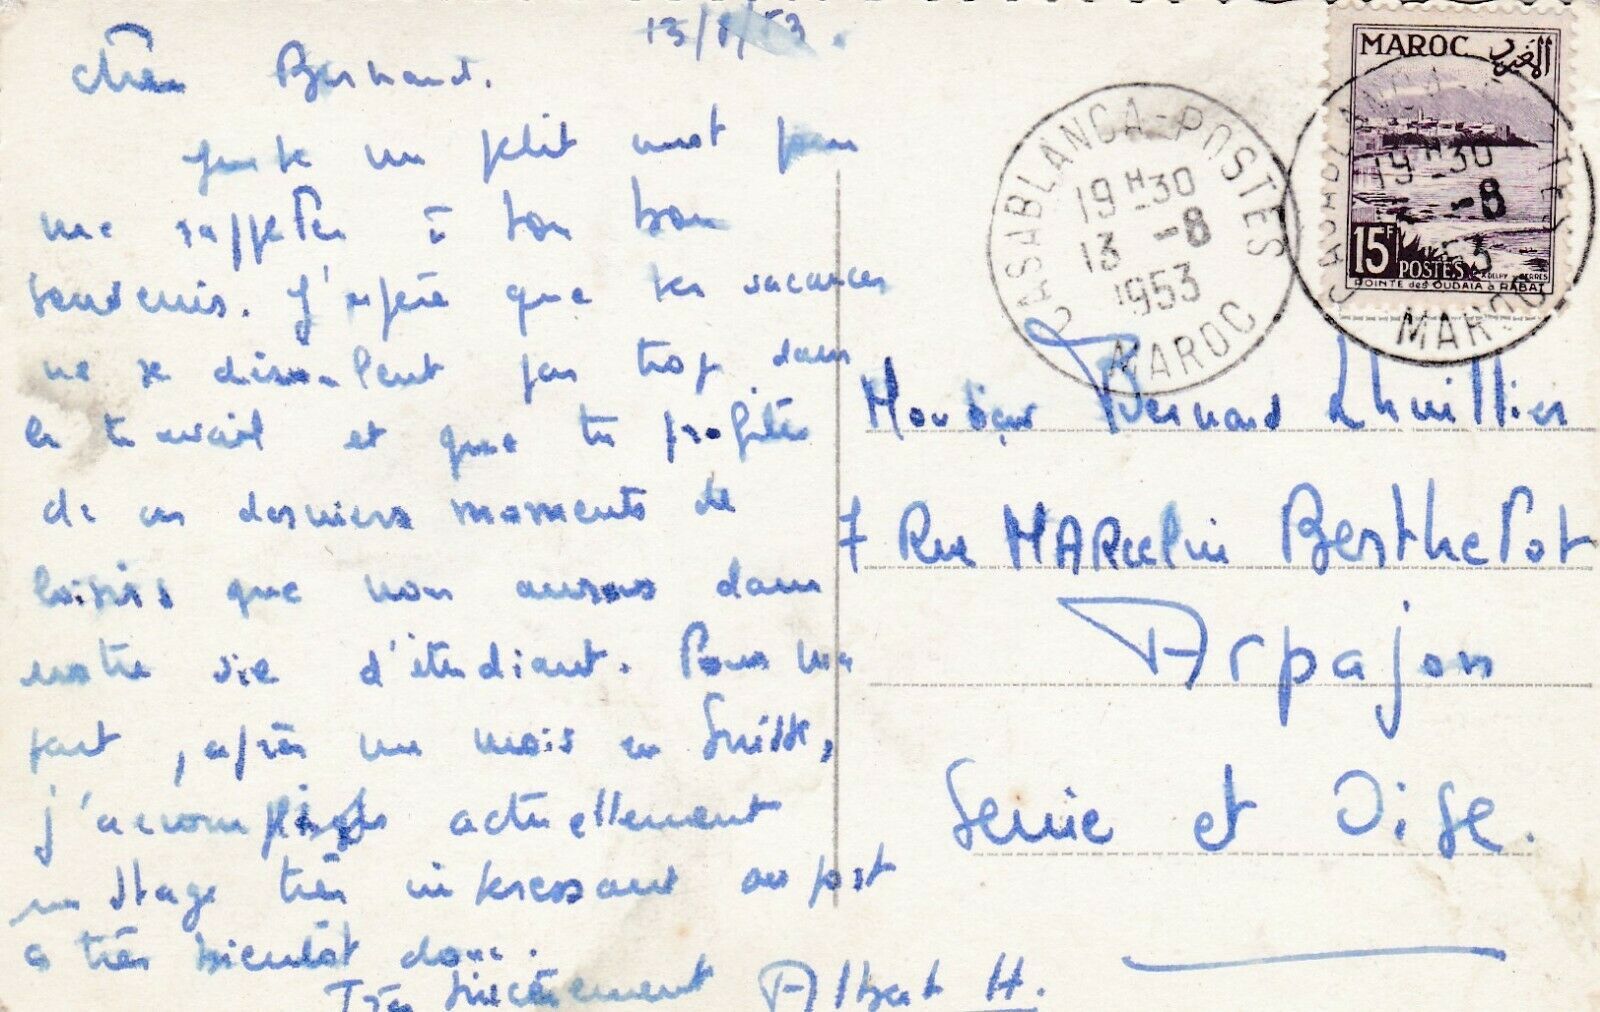 13/8/53.
cher Bernard.
Juste un petit mot pour
me rappeler à ton bon
souvenir. J'espère que tes vacances
ne se déroulent pas trop dans
le travail et que tu profites
de ces derniers moments de
loisirs que nous aurons dans
notre vie d'étudiant. Pour ma
part, après un mois en Suisse,
j'accomplis actuellement
un stage très intéressant au port
à très bientôt donc.
Très sincèrement Albert H.
CASABLANCA-POSTES
19H30
13 -8
1953
MAROC
MAROC المغرب
19H30
-8
53
15F POSTES
POINTE des OUDAIA à RABAT
MAROC
Monsieur Bernard Lhuillier
7 Rue MARcelin Berthelot
Arpajon
Seine et Oise.